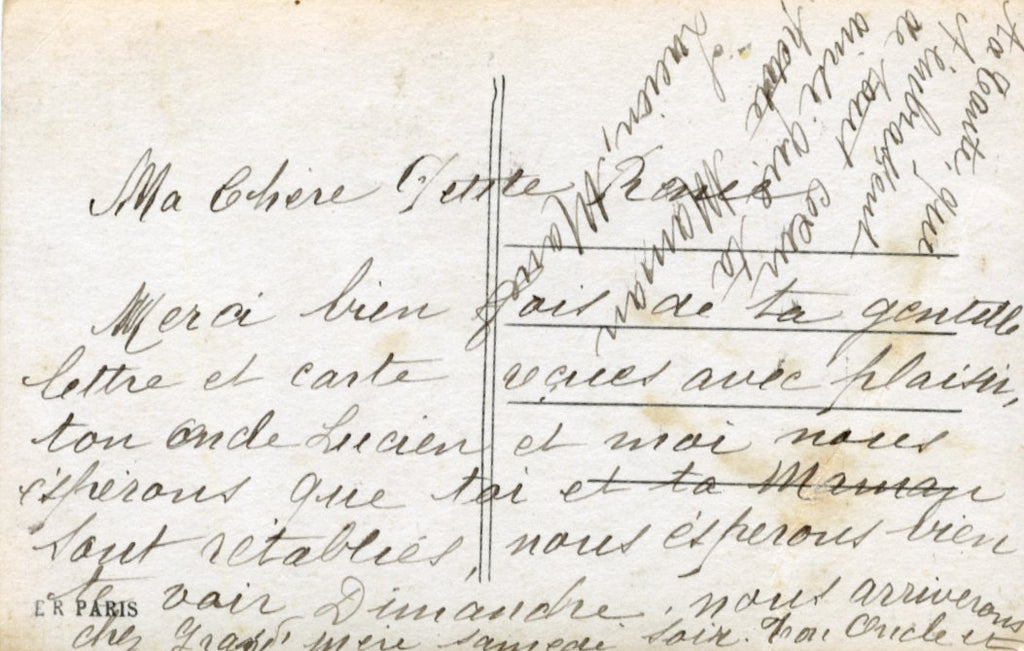 Ma Chère Petite Renée
Merci bien fois de ta gentille
lettre et carte reçues avec plaisir,
ton Oncle Lucien et moi nous
éspèrons que toi et ta Maman
sont rétabliés, nous éspèrons bien
te voir Dimandre. nous arriverons
E R PARIS
chez Grand' mère samedi soir. Ton Oncle et
ta Tante, qui
t'embrassent
de tout coeur
ainsi que ta
petite Maman
Lucien, Marie